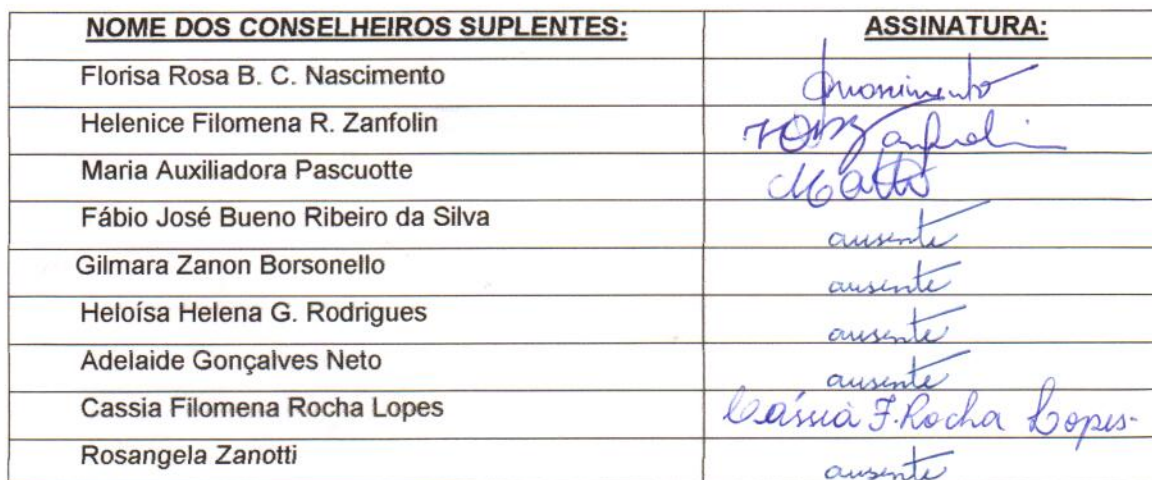 NOME DOS CONSELHEIROS SUPLENTES: ASSINATURA:
Florisa Rosa B. C. Nascimento
Helenice Filomena R. Zanfolin
Maria Auxiliadora Pascuotte
Fábio José Bueno Ribeiro da Silva ausente
Gilmara Zanon Borsonello ausente
Heloísa Helena G. Rodrigues ausente
Adelaide Gonçalves Neto ausente
Cassia Filomena Rocha Lopes Cássia F. Rocha Lopes-
Rosangela Zanotti ausente